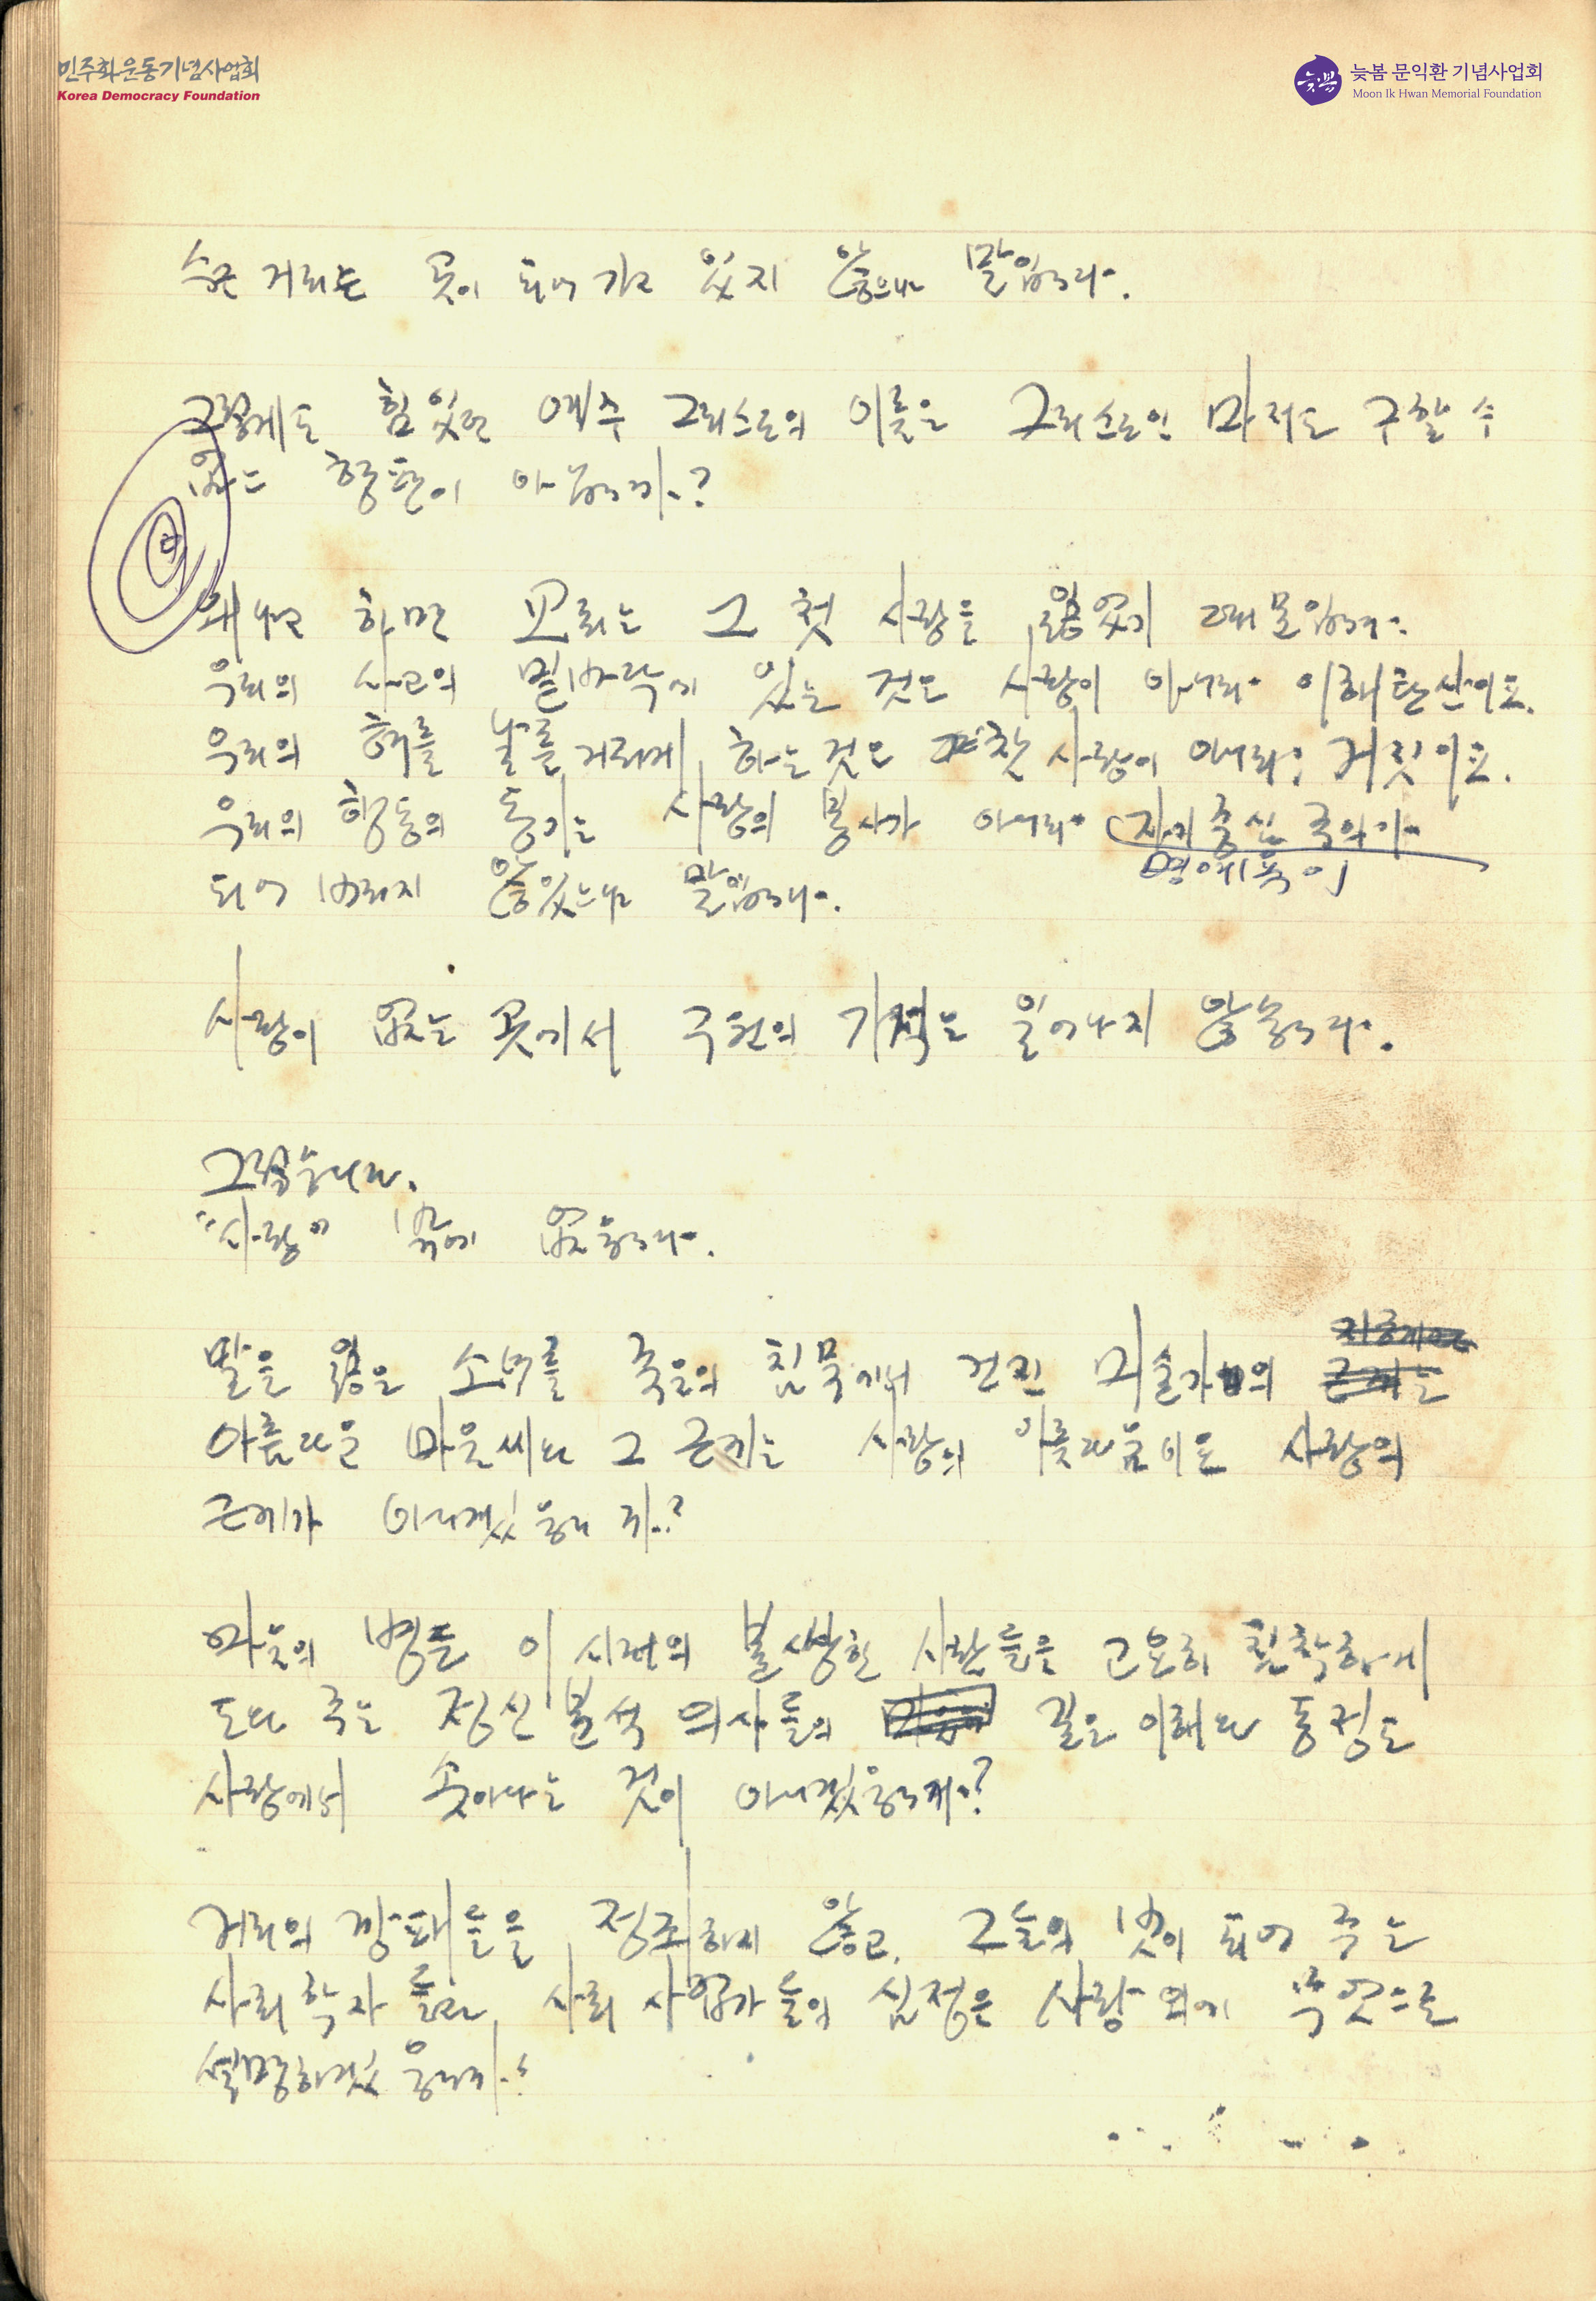 민주화운동기념사업회
Korea Democracy Foundation
늦봄 문익환 기념사업회
Moon Ik Hwan Memorial Foundation
늦봄
곳이 되어 가고 있지 않으냐 말입니다.
그렇게도 힘있던 예수 그리스도의 이름은 그리스도인 마저도 구할 수
없는 형편이 아닙니까?
왜냐고 하면 교회는 그 첫 사랑을 잃었기 때문입니다.
우리의 사고의 밑바닥에 있는 것은 사랑이 아니라 이해타산이오.
우리의 혀를 날름거리게 하는 것은 참 사랑이 아니라, 거짓이오.
우리의 행동의 동기는 사랑의 봉사가 아니라 (자기중심 주의가
명예욕이
되어 버리지 않았느냐 말입니다.
사랑이 없는 곳에서 구원의 기적은 일어나지 않습니다.
그렇습니다.
"사랑" 밖에 없습니다.
말을 잃은 소녀를 죽음의 침묵에서 건진 미술가의
아름다운 마음씨와 그 근기는 사랑의 아름다움이오 사랑의
근기가 아니겠습니까?
마음의 병든 이 시대의 불쌍한 사람들을 고요히 침착하게
도와 주는 정신분석 의사들의 깊은 이해와 동정도
사랑에서 솟아나는 것이 아니겠습니까?
거리의 깡패들을 정죄하지 않고, 그들의 벗이 되어 주는
사회학자들과 사회 사업가들의 심정은 사랑 외에 무엇으로
설명하겠습니까?